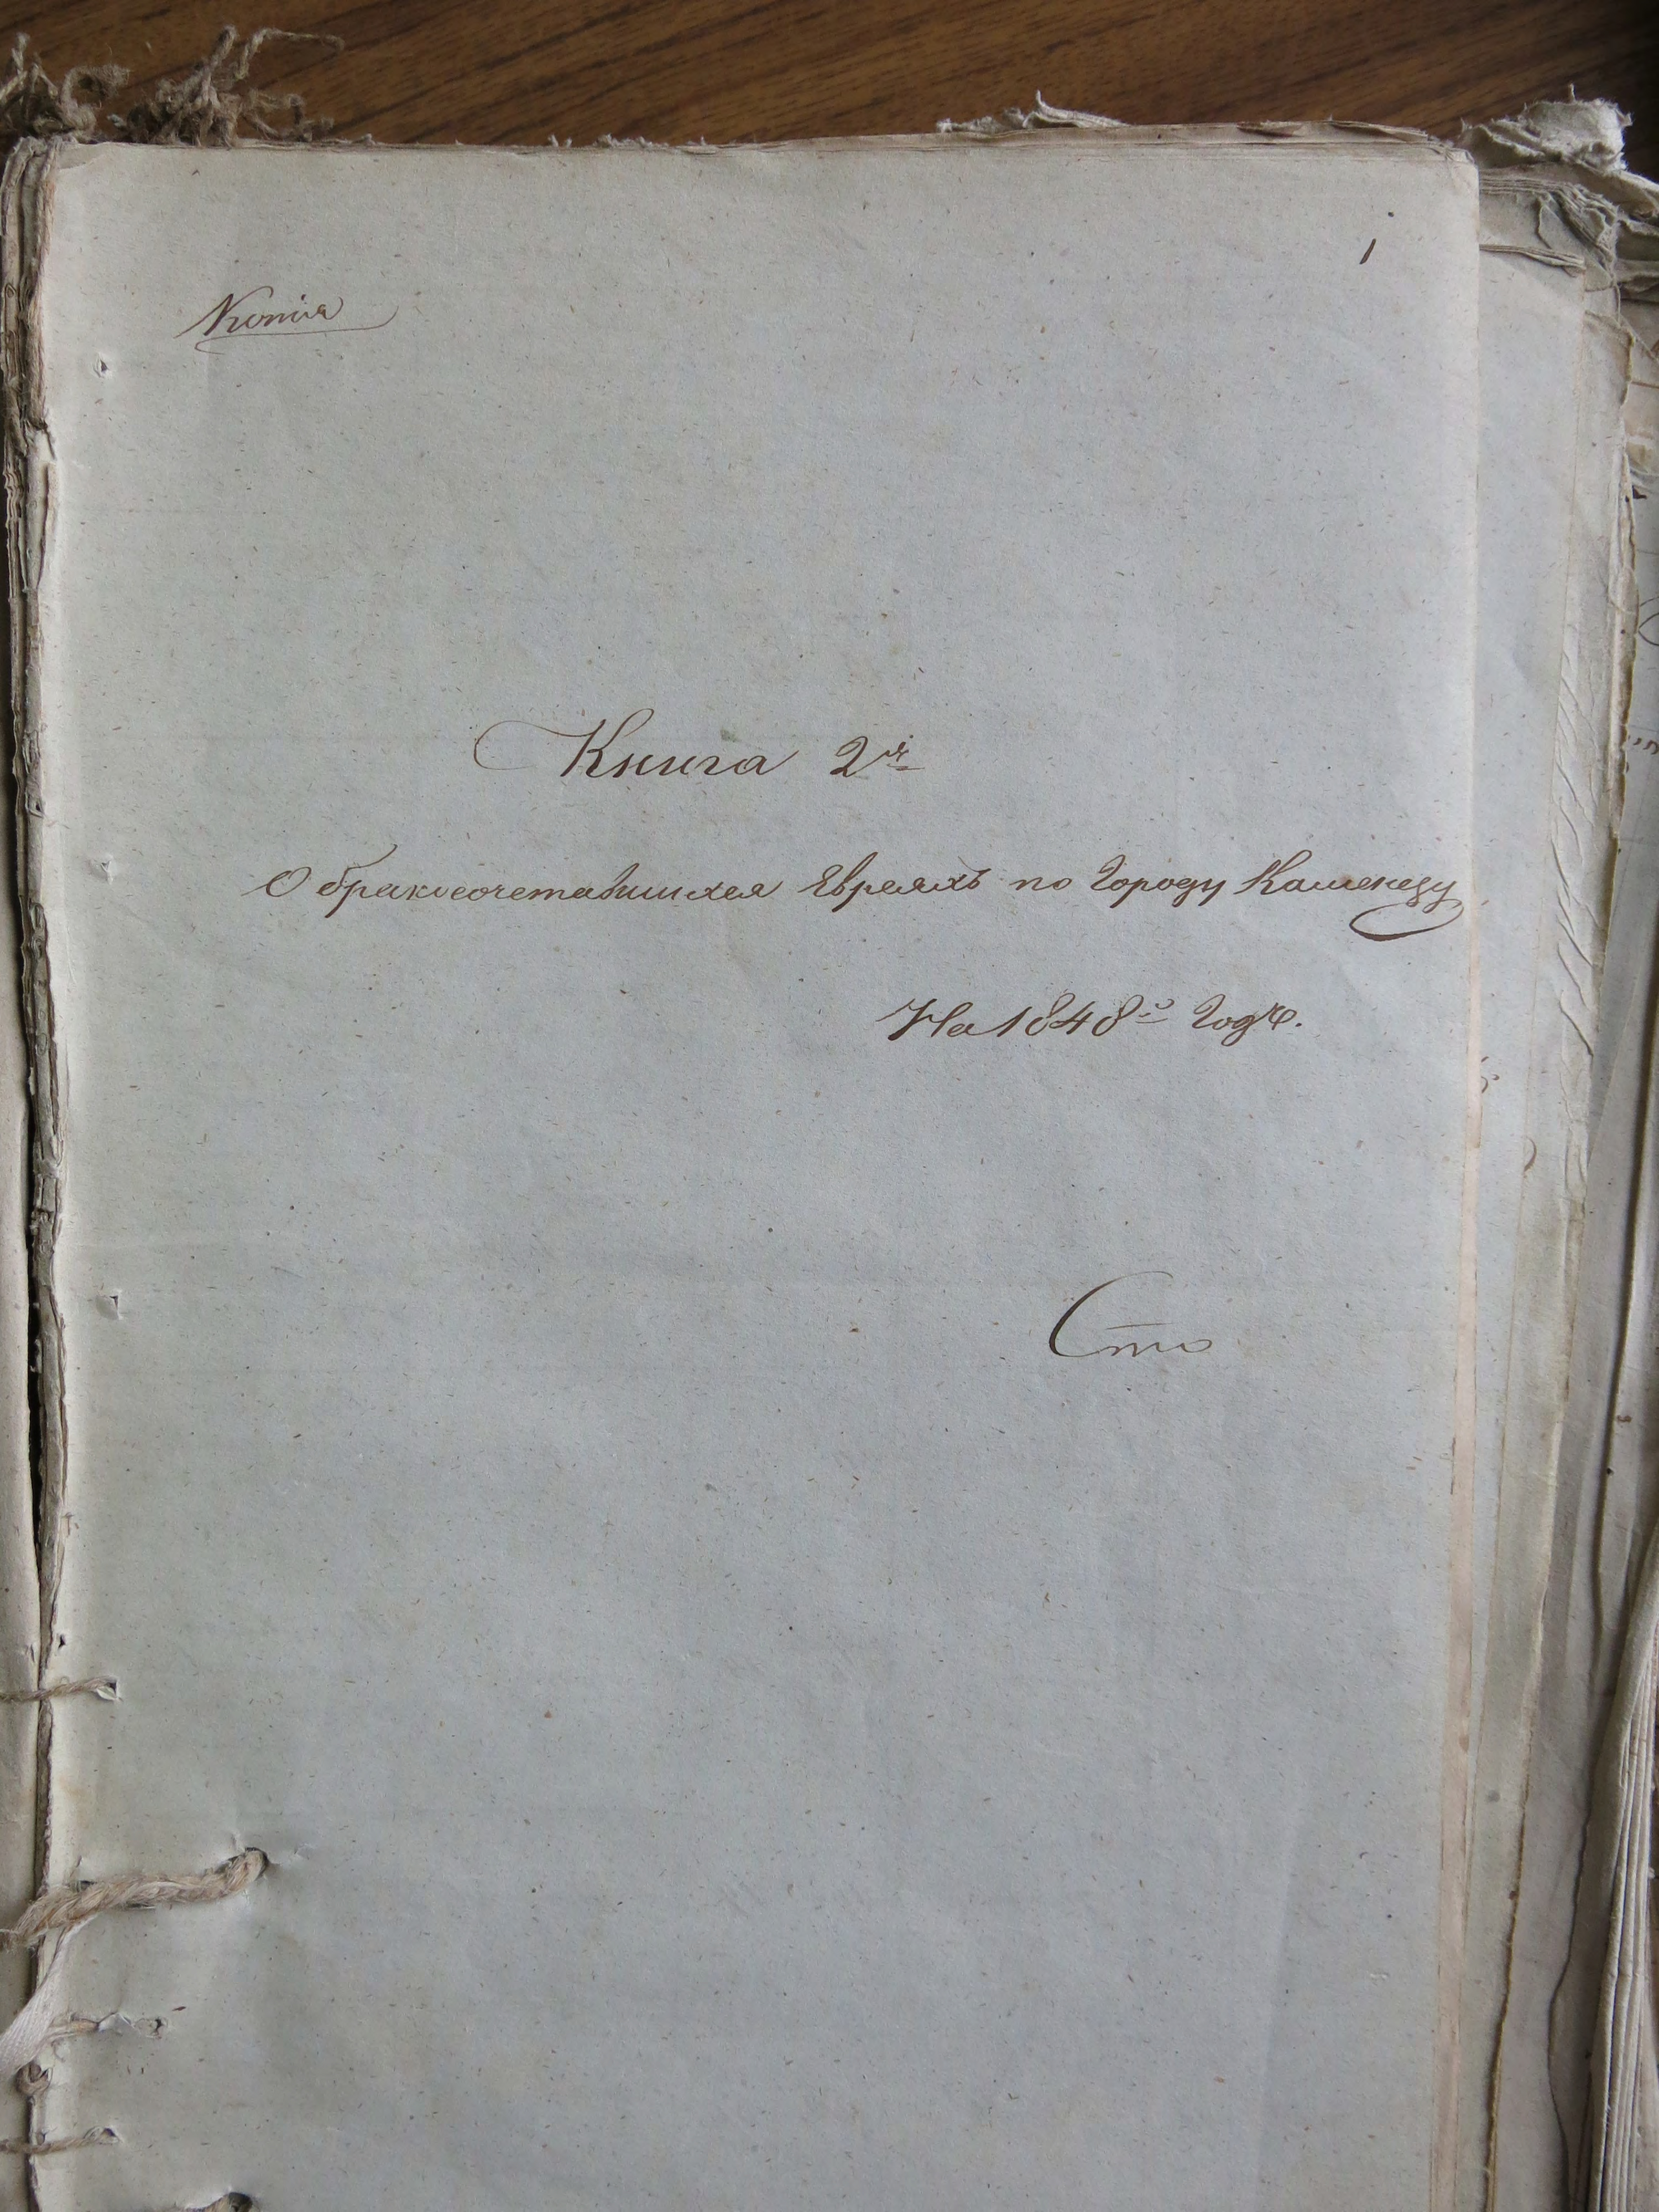 1
Копія
Книга 2я
О бракосочетавшихся Евреяхъ по Городу Каменецу
На 1848й Годъ.
Сто